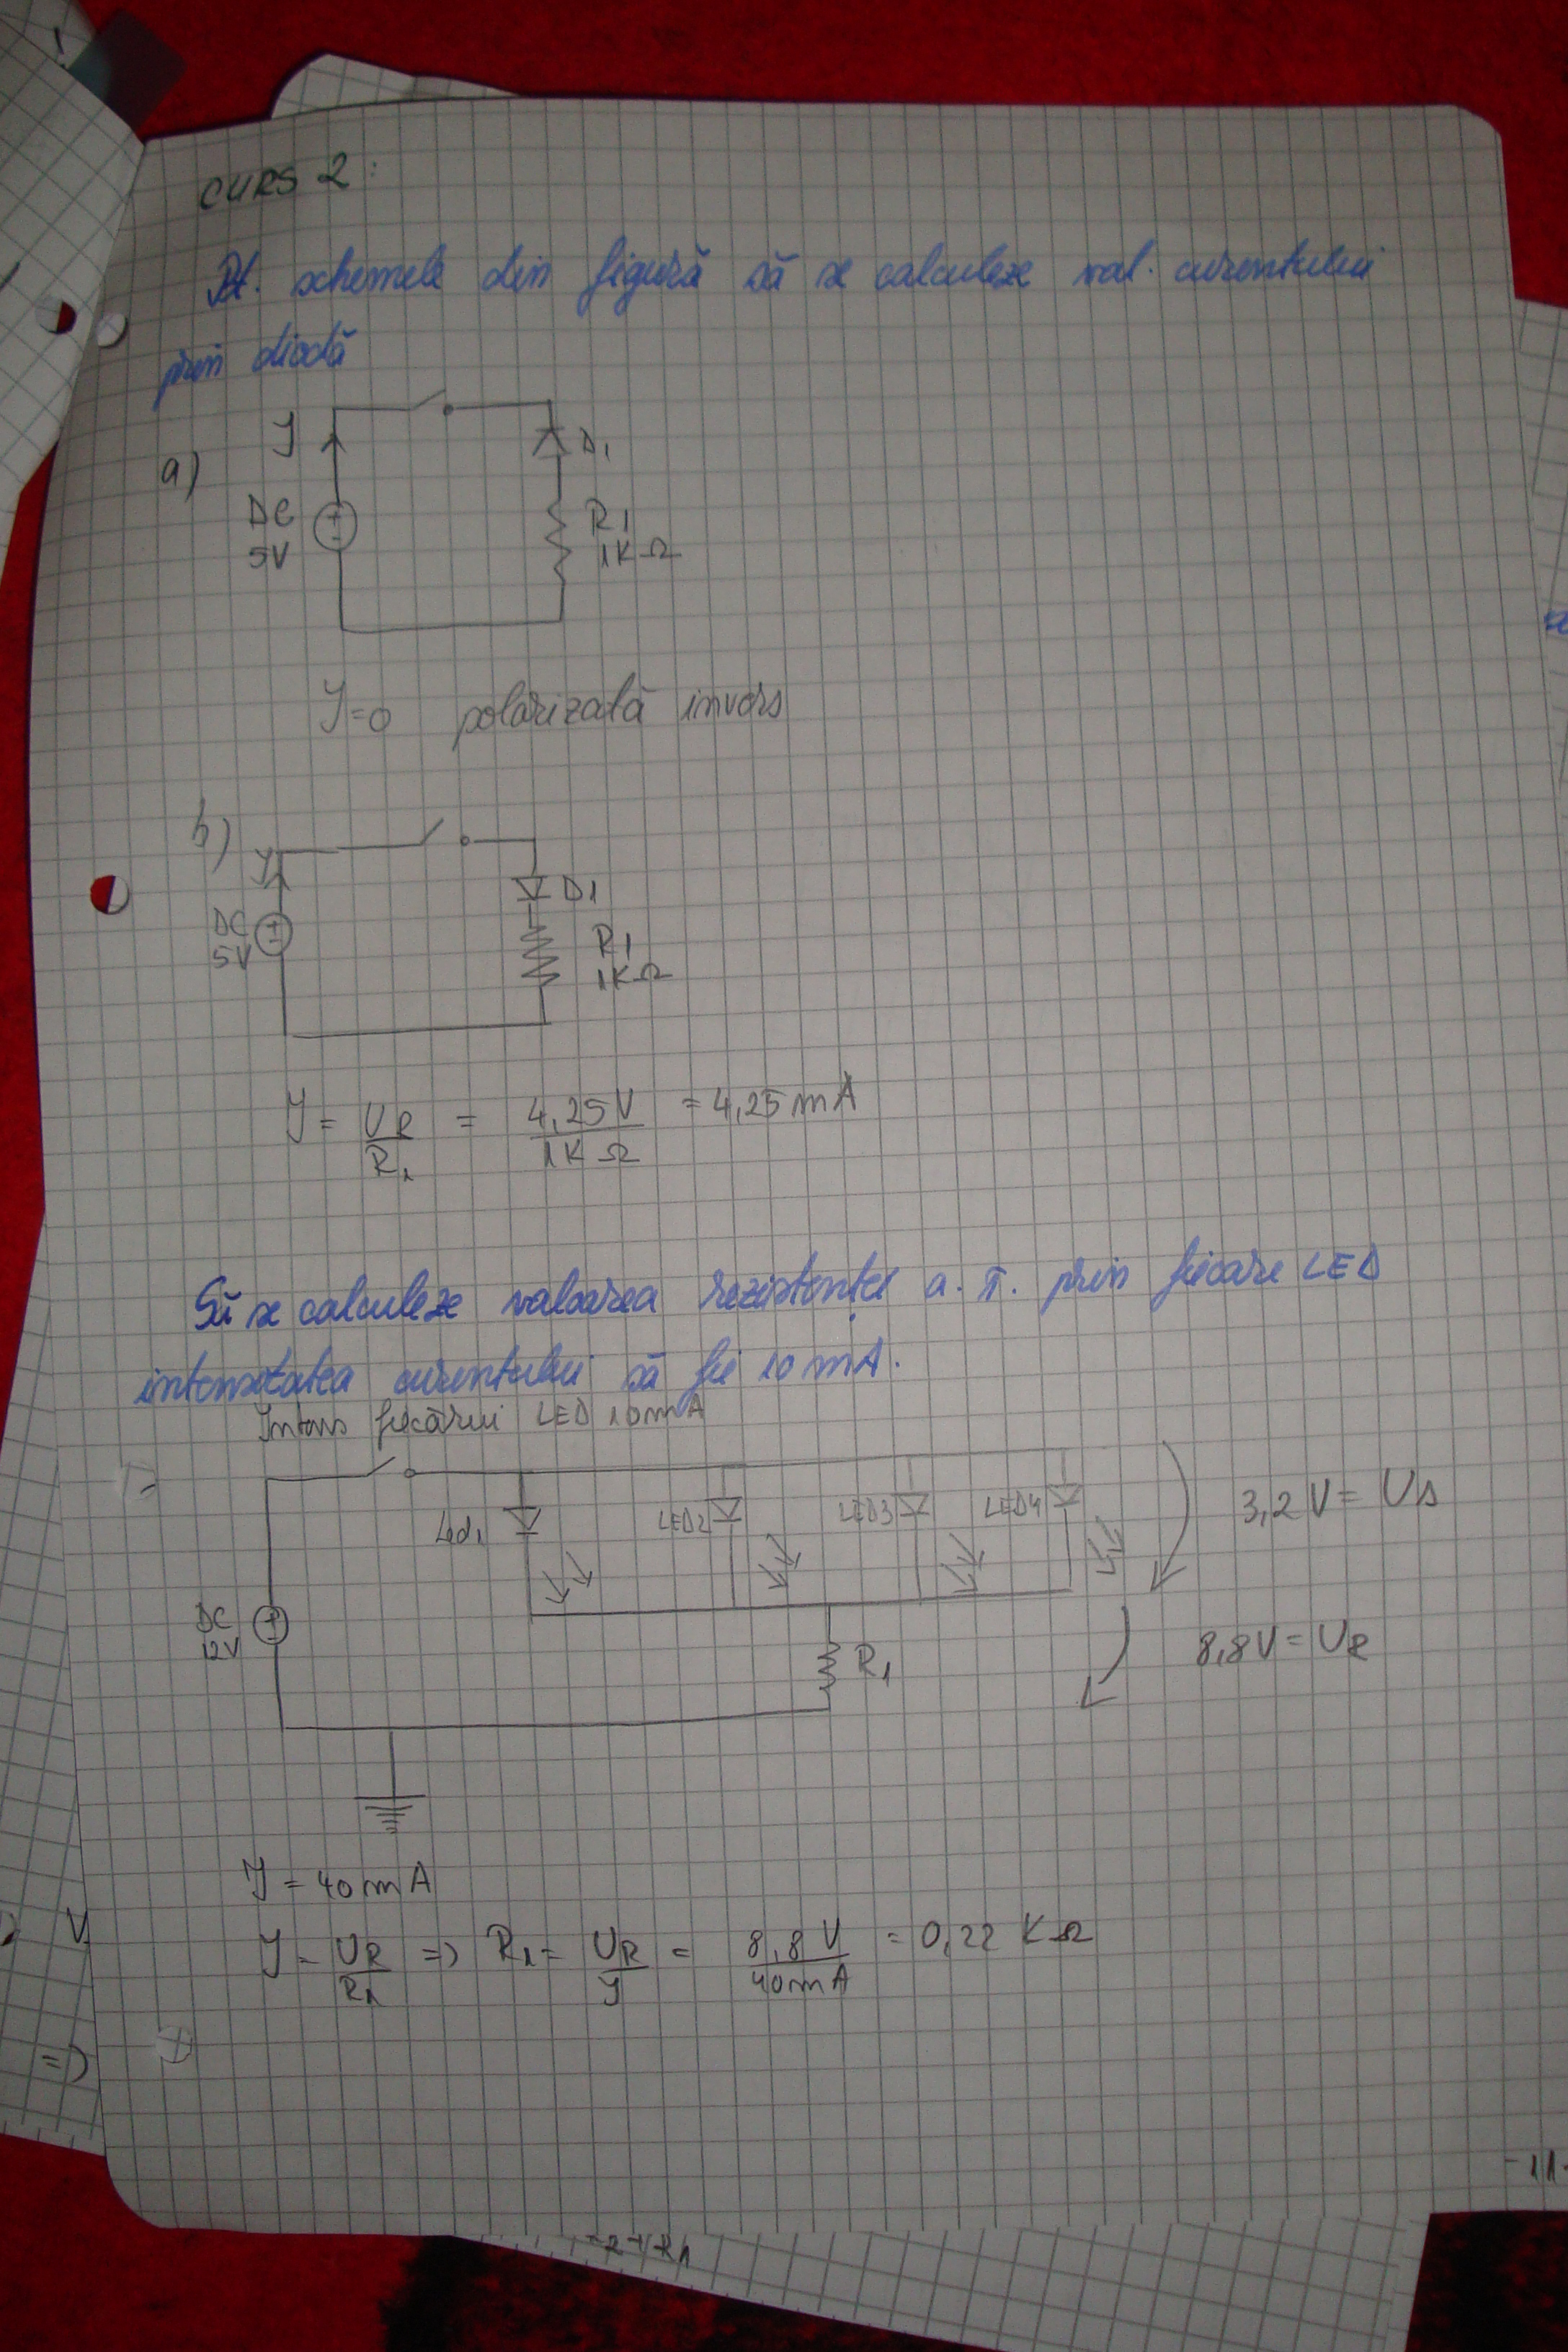 CURS 2:
Pt. schemele din figură să se calculeze val. curentului
prin diodă
a)
I
D1
DC
5V
R1
1KΩ
I=0 polarizată invers
b)
I
D1
DC
5V
R1
1KΩ
I = UR/R1 = 4,25V/1KΩ = 4,25 mA
Să se calculeze valoarea rezistenței a. î. prin fiecare LED
intensitatea curentului să fie 10 mA.
Intens fiecărui LED 10mA
Led1
LED2
LED3
LED4
3,2 V = UD
DC
12V
R1
8,8V = UR
I = 40 mA
I = UR/R1 => R1 = UR/I = 8,8 V/40mA = 0,22 KΩ
V
=>
-11-